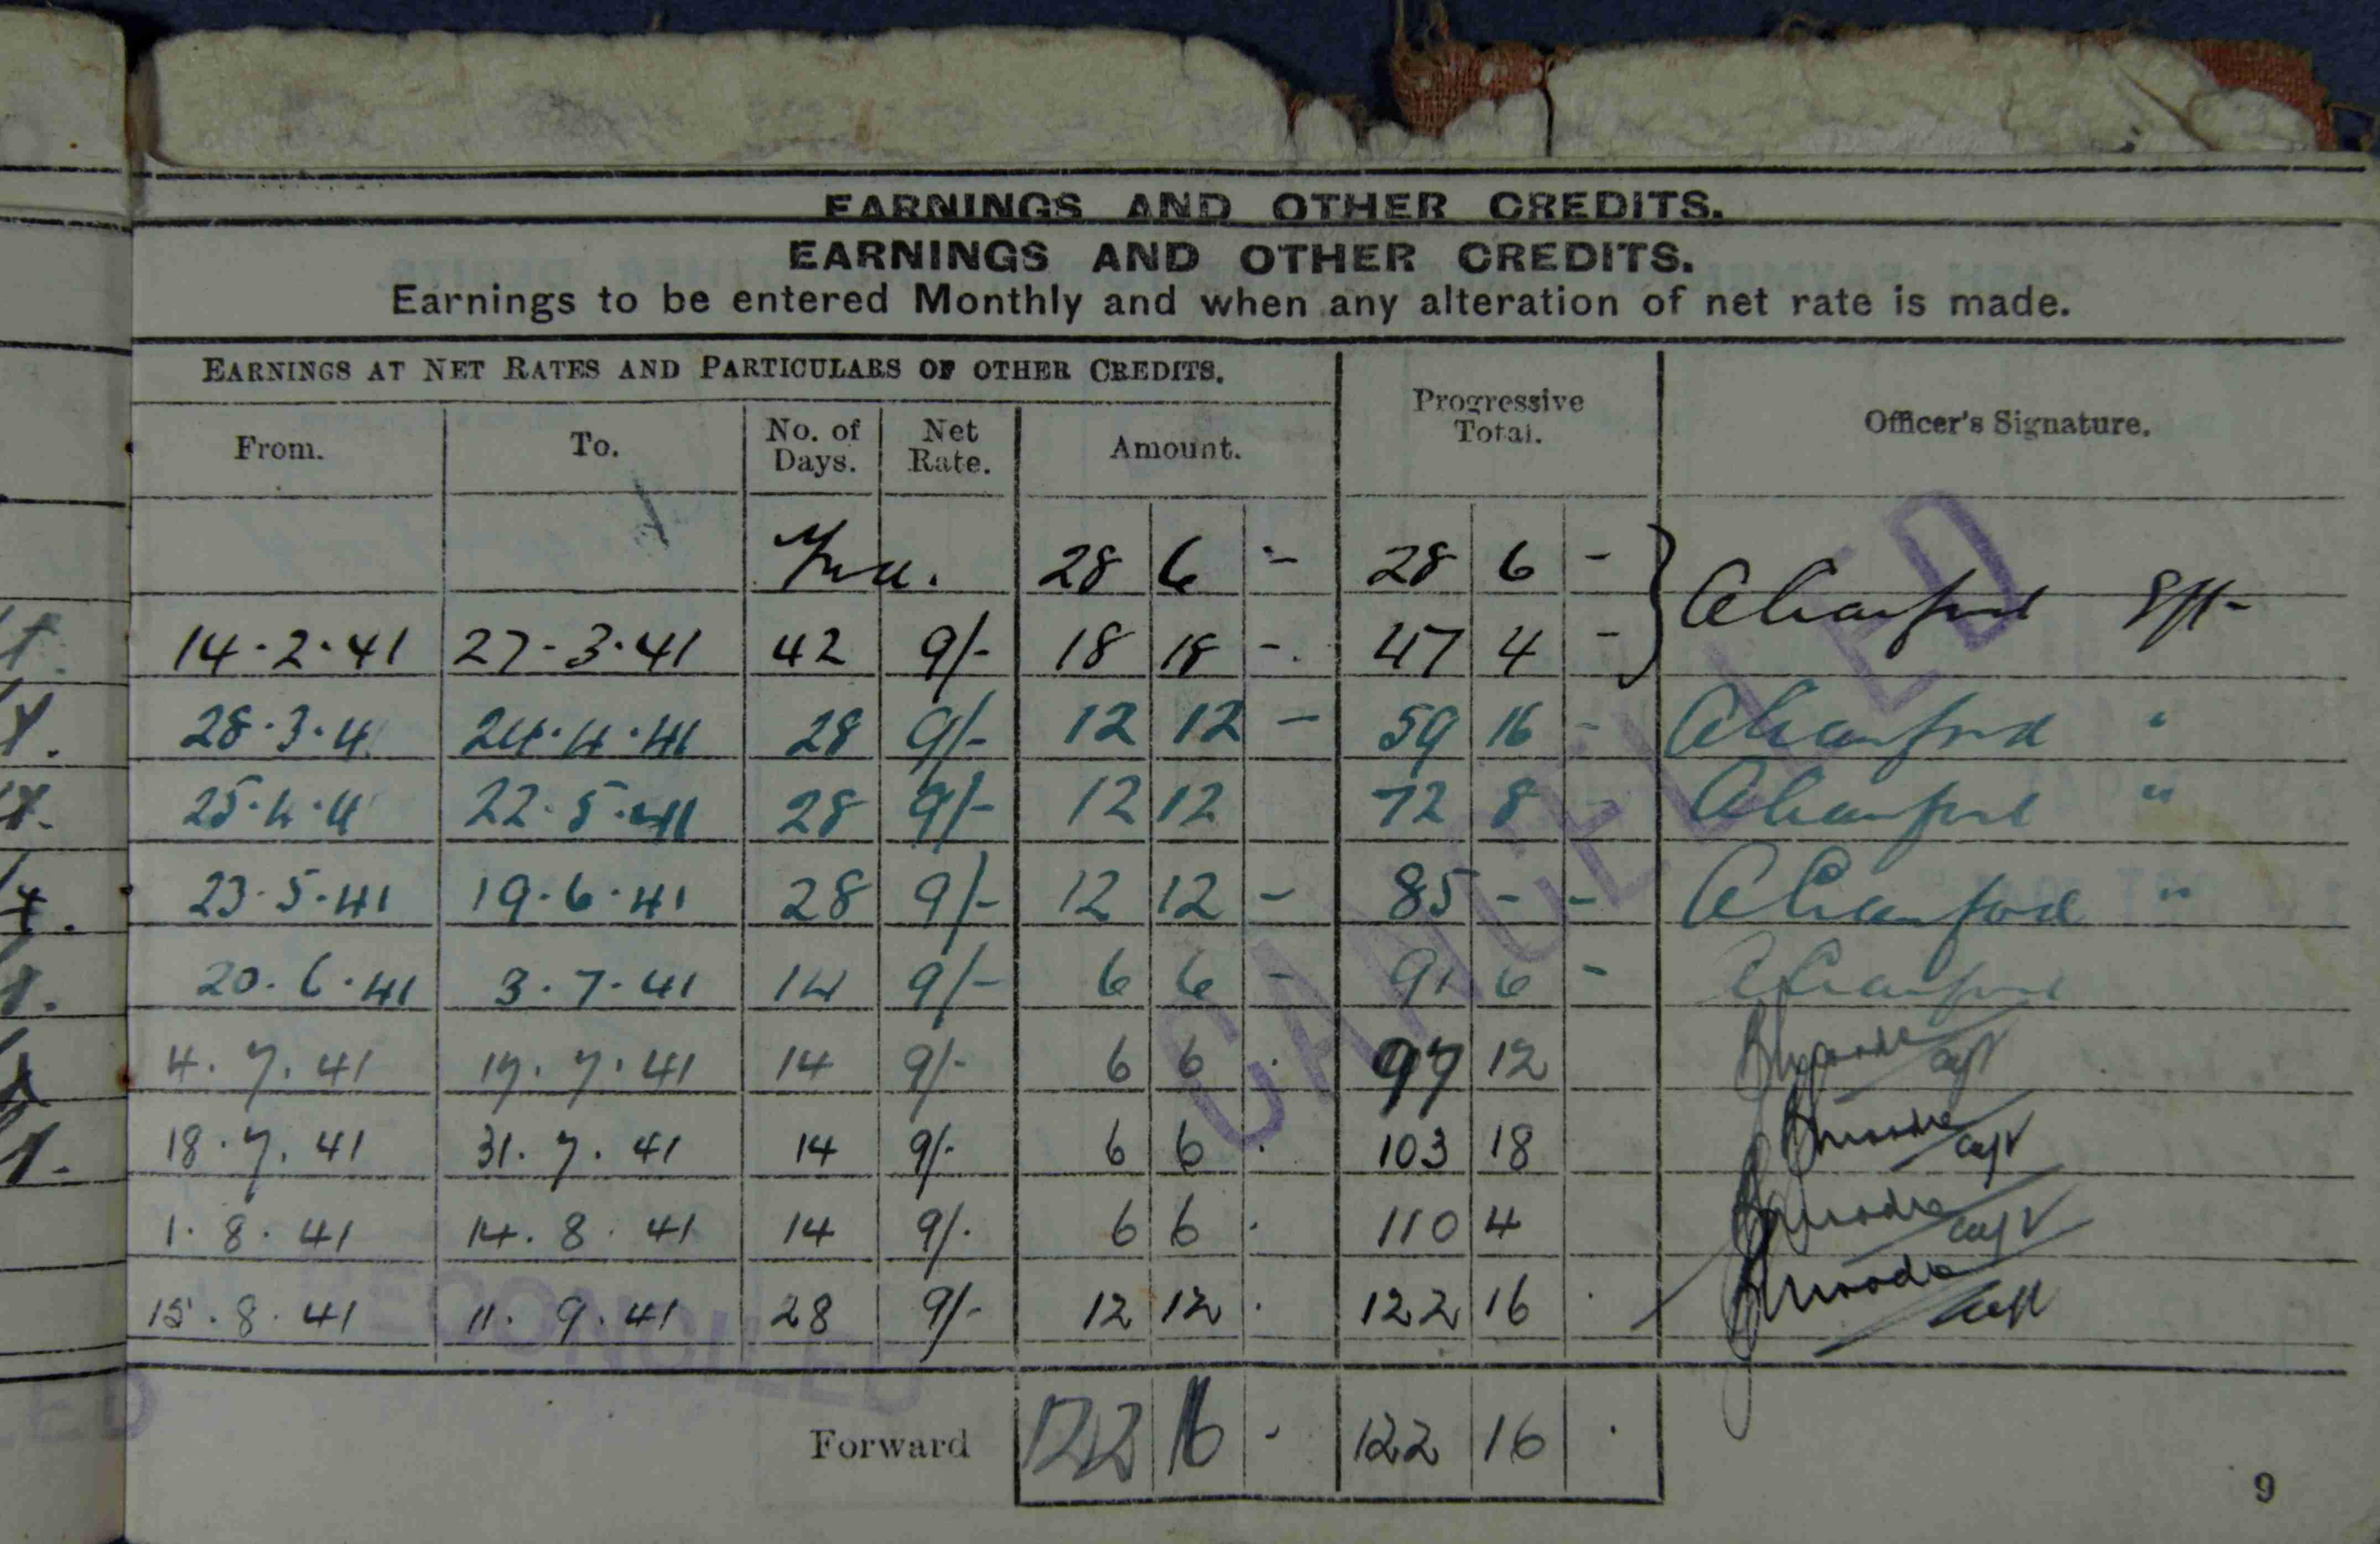 EARNINGS AND OTHER CREDITS.
EARNINGS AND OTHER CREDITS.
Earnings to be entered Monthly and when any alteration of net rate is made.
EARNINGS AT NET RATES AND PARTICULARS OF OTHER CREDITS. Progressive Total. Officer's Signature.
From. To. No. of Days. Net Rate. Amount.
28 6 - 28 6 -
14.2.41 27-3.41 42 9/- 18 18 - 47 4 -
28.3.4 24.4.41 28 9/- 12 12 - 59 16 -
25.4.4 22.5.41 28 9/- 12 12 72 8 -
23.5.41 19.6.41 28 9/- 12 12 - 85 - -
20.6.41 3.7.41 14 9/- 6 6 - 91 6 -
4.7.41 17.7.41 14 9/- 6 6 . 97 12 Capt
18.7.41 31.7.41 14 9/- 6 6 . 103 18 Capt
1.8.41 14.8.41 14 9/. 6 6 . 110 4 Capt
15.8.41 11.9.41 28 9/- 12 12 . 122 16 . Capt
Forward 122 16 - 122 16 .
CANCELLED
RECONCILED
9